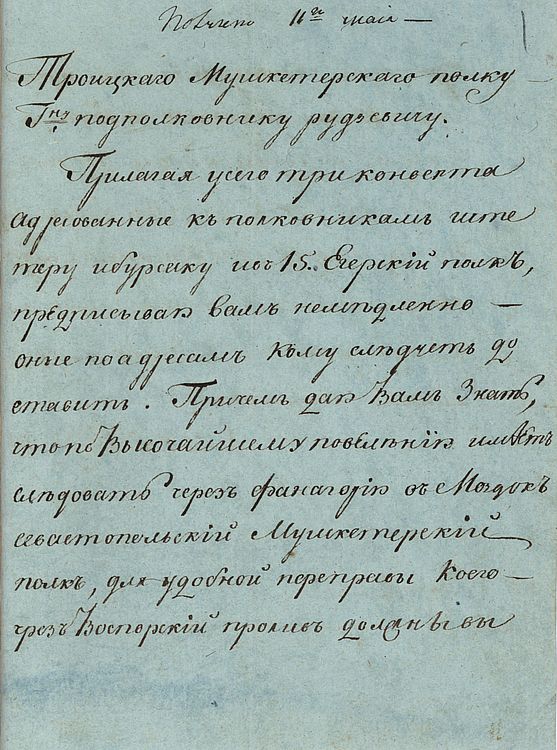 Получено 11го мая —
Троицкаго Мушкетерскаго полку
Гну подполковнику рудзевичу.
Прилагая у сего три конверта
адресованные къ полковникамъ ште
теру и бурсаку и въ 15. Егерскій полкъ,
предписываю вамъ немѣдленно —
оные по адресамъ кому слѣдуетъ до
ставить. Причемъ даю Вамъ Знать,
что по Высочайшему повелѣнію имѣетъ
слѣдовать чрезъ фанагорію въ Моздокъ
севастопольскій Мушкетерскій
полкъ, для удобной переправы Коего —
чрезъ Воспорскій проливъ должны вы